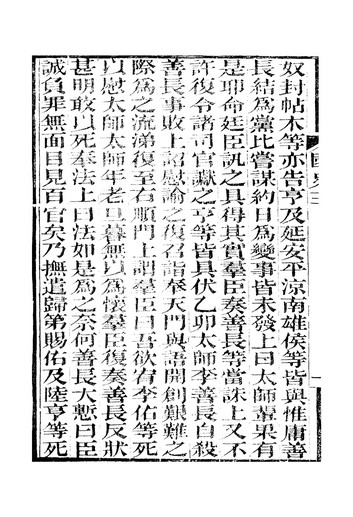 奴封帖木等亦告亨及延安平涼南雄侯等皆與惟庸善
長結為黨比嘗謀約日為變事皆未發上曰太師輩果有
是耶命廷臣訊之具得其實羣臣奏善長等當誅上又不
許復令諸司官讞之亨等皆具伏乙卯太師李善長自殺
善長事敗上詔慰諭之復召詣奉天門與語開創艱難之
際為之流涕復至右順門上謂羣臣曰吾欲宥李佑等死
以慰太師太師年老旦暮無以為懷羣臣復奏善長反狀
甚明敢以死奉法上曰法如是為之奈何善長大慙曰臣
誠負罪無面目見百官矣乃撫遣歸第賜佑及陸亨等死